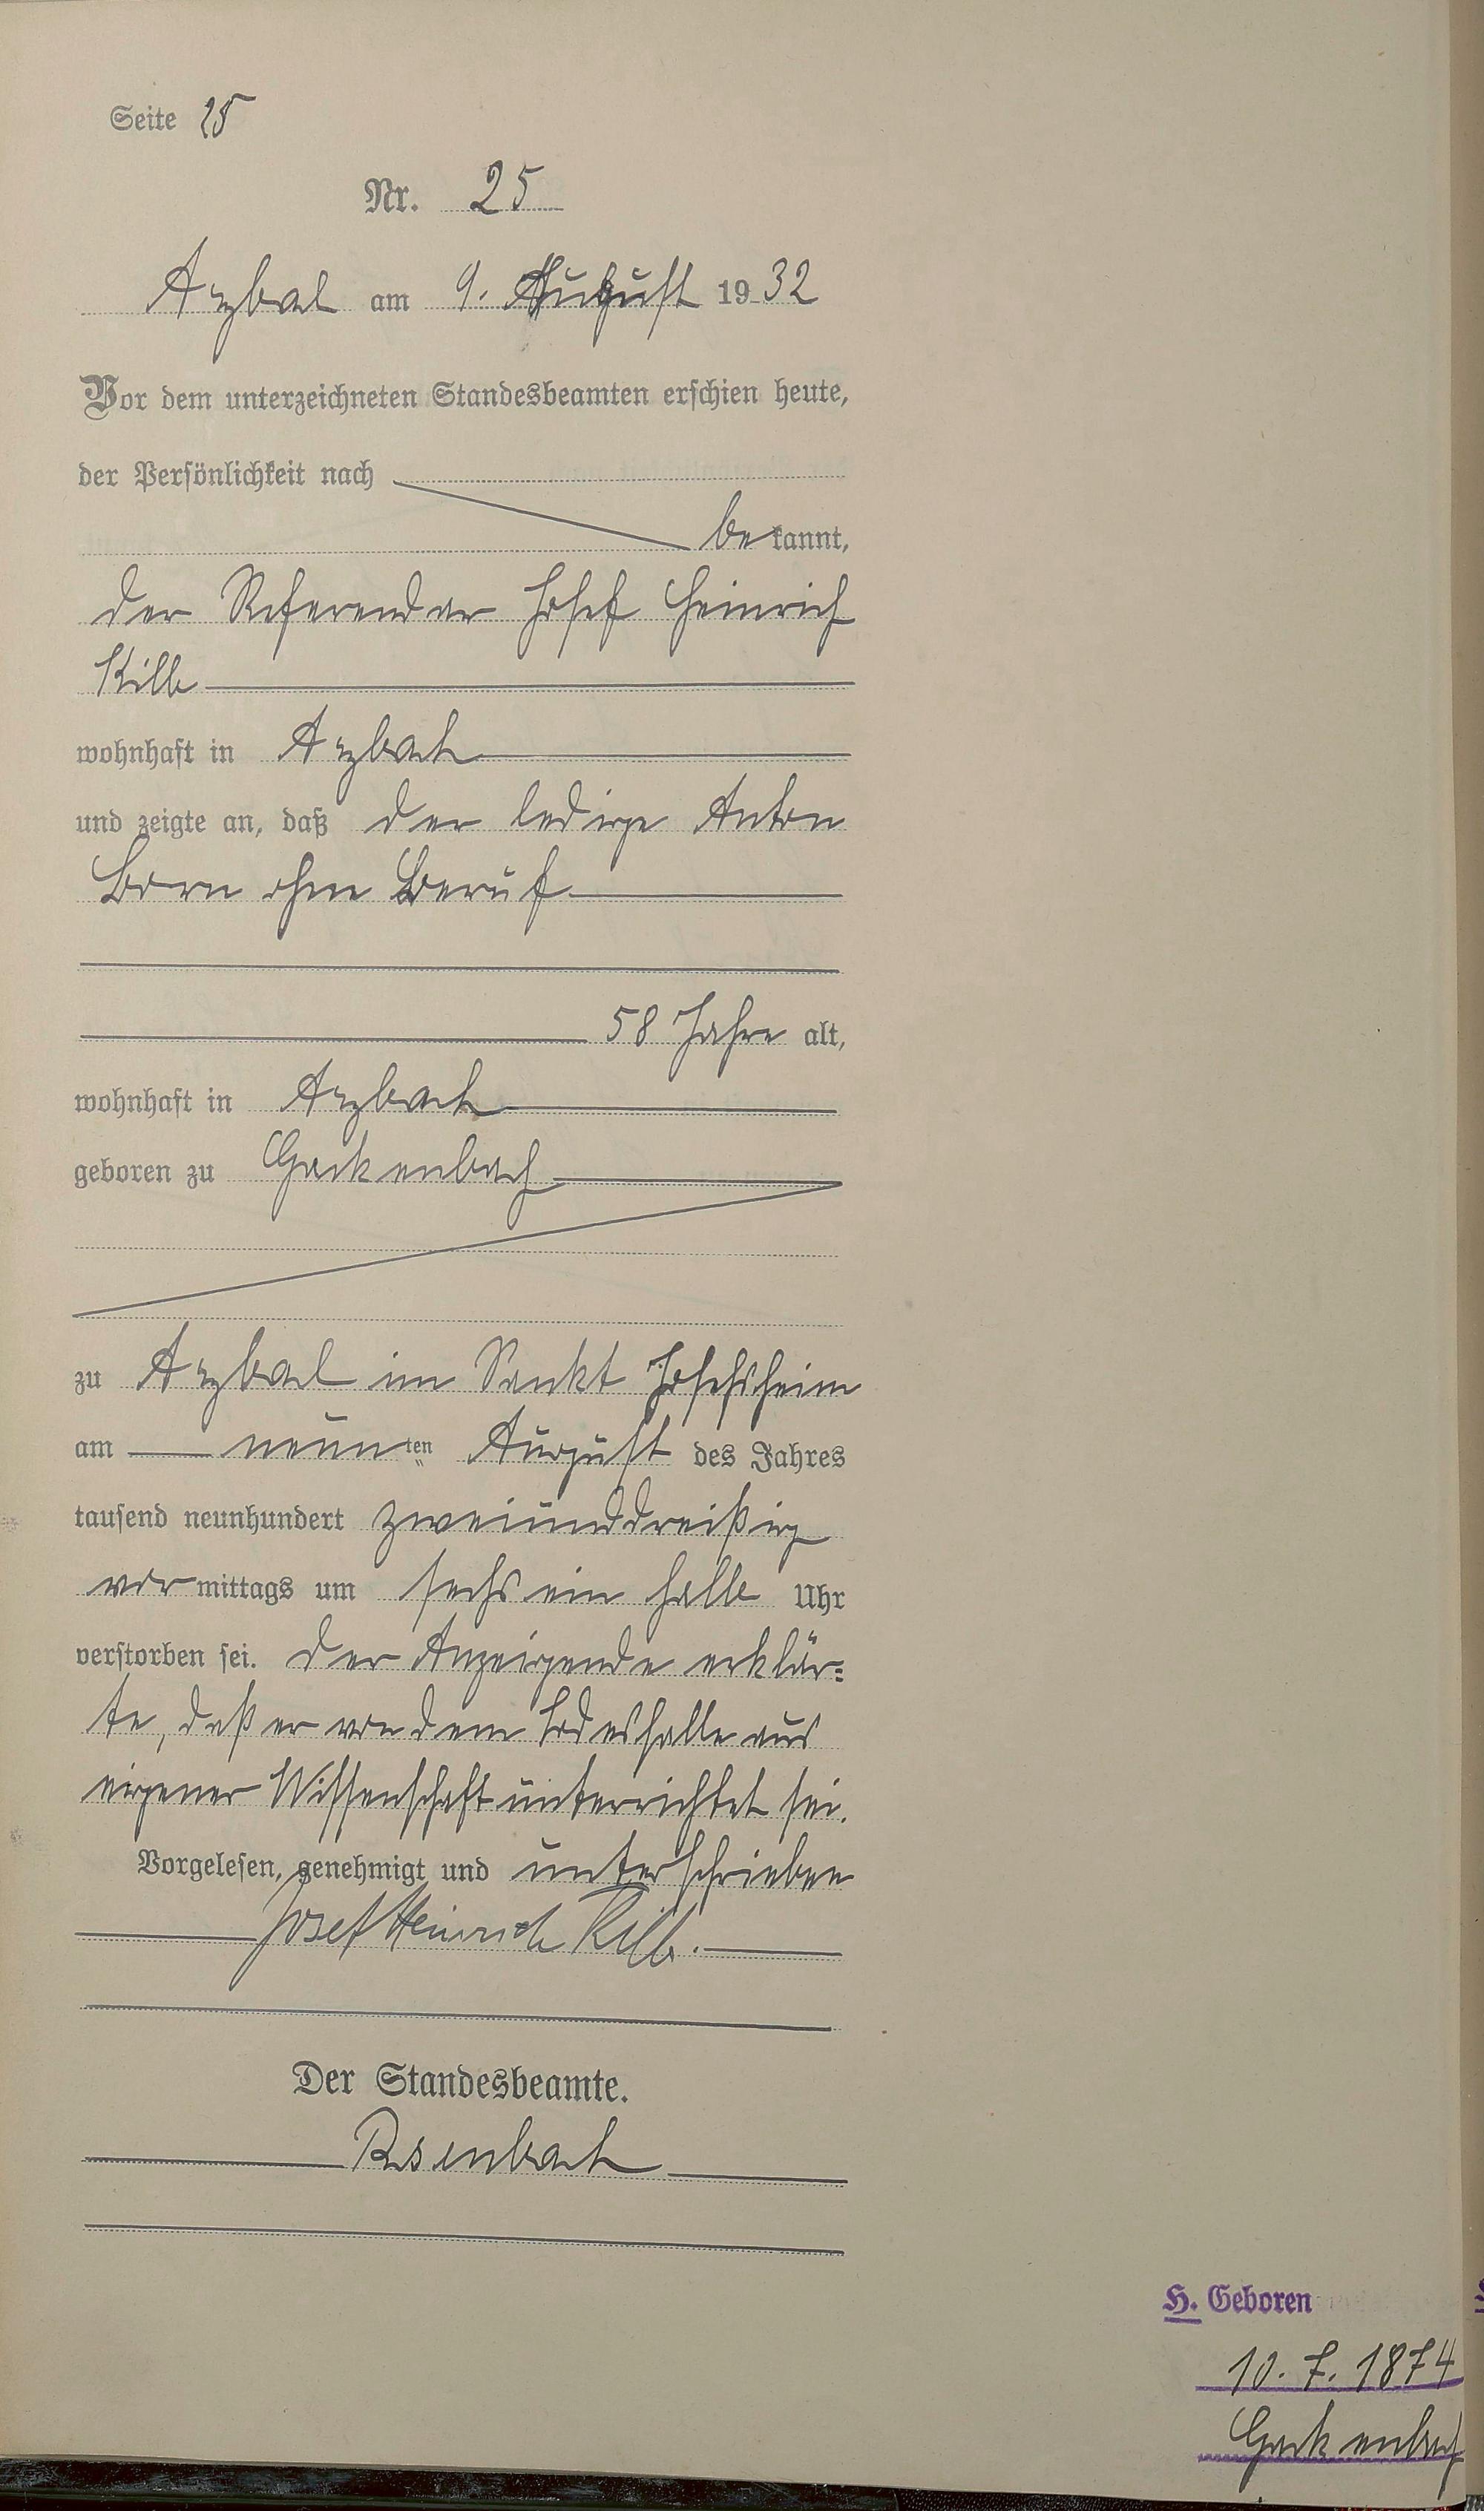 Seite 25
Nr. 25
Arzbach am 9. August 1932
Vor dem unterzeichneten Standesbeamten erschien heute,
der Persönlichkeit nach
bekannt,
der Referendar Josef Heinrich
Kilb
wohnhaft in Arzbach
und zeigte an, daß der ledige Anton
Born ohne Beruf
58 Jahre alt,
wohnhaft in Arzbach
geboren zu Gackenbach
zu Arzbach im Sankt Josefsheim
am neunten August des Jahres
tausend neunhundert zweiunddreißig
vormittags um sechs ein halb Uhr
verstorben sei. Der Anzeigende erklär=
te, daß er von dem Todesfalle aus
eigener Wissenschaft unterrichtet sei.
Vorgelesen, genehmigt und unterschrieben
Josef Heinrich Kilb.
Der Standesbeamte.
H. Geboren
10. 7. 1874
Gackenbach